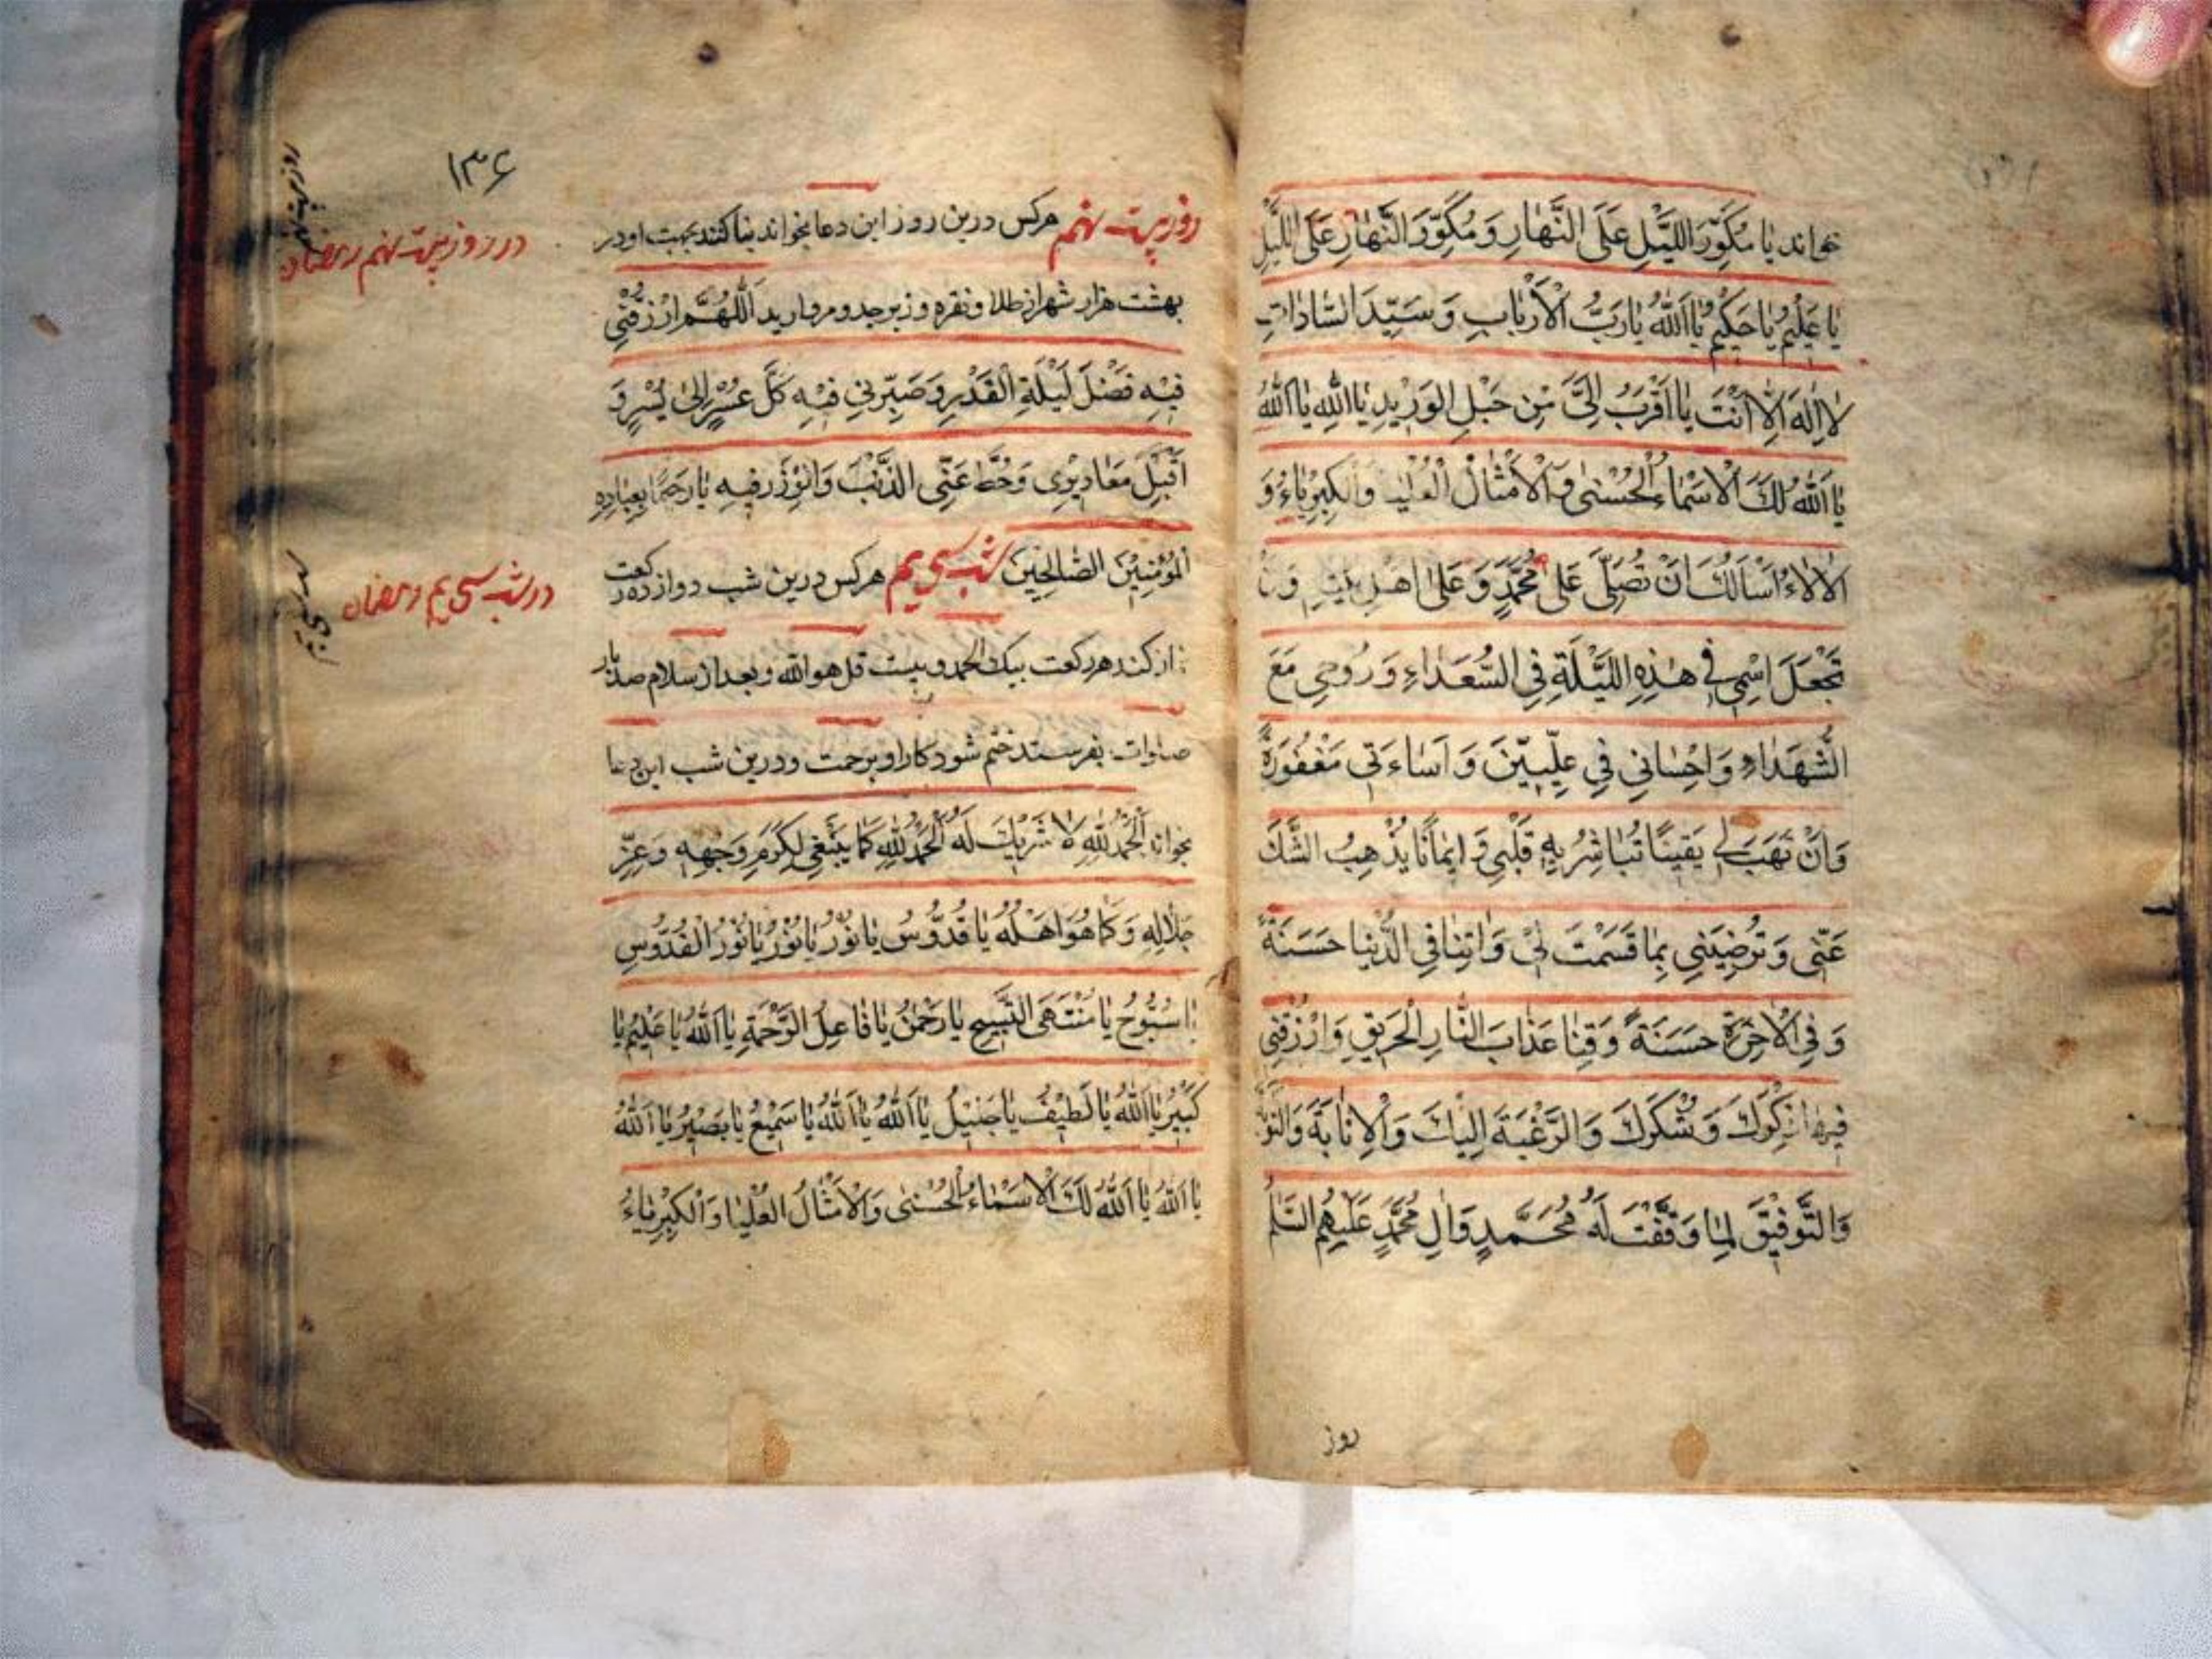 خواند یا مُكَوِّرَ اللَّیْلِ عَلَی النَّهارِ وَ مُكَوِّرَ النَّهارِ عَلَی اللَّیْلِ
یا عَلیمُ یا حَكیمُ یا اَللّٰهُ یا رَبَّ الْاَرْبابِ وَ سَیِّدَ السّاداتِ
لا اِلٰهَ اِلّا اَنْتَ یا اَقْرَبُ اِلَیَّ مِنْ حَبْلِ الوَریْدِ یا اَللّٰهِ یا اَللّٰهُ
یا اَللّٰهُ لَكَ الْاَسْماءُ الْحُسْنی وَ الْاَمْثالُ الْعُلْیا وَالْكِبْرِیاءُ وَ
الْاٰلاءُ اَسْأَلُكَ اَنْ تُصَلِّیَ عَلی مُحَمَّدٍ وَ عَلی اَهْلِ بَیْتِهِ وَ اَنْ
تَجْعَلَ اسْمی فی هٰذِهِ اللَّیْلَةِ فِی السُّعَداءِ وَ رُوحی مَعَ
الشُّهَداءِ وَ اِحْسانی فی عِلِّیّینَ وَ اَساءَتی مَغْفُورَةً
وَ اَنْ تَهَبَ لی یَقینًا تُباشِرُ بِهِ قَلْبی وَ ایمانًا یُذْهِبُ الشَّكَّ
عَنّی وَ تُرْضِیَنی بِما قَسَمْتَ لی وَ اٰتِنا فِی الدُّنْیا حَسَنَةً
وَ فِی الْاٰخِرَةِ حَسَنَةً وَ قِنا عَذابَ النّارِ الْحَریقِ وَ ارْزُقْنی
فیها ذِكْرَكَ وَ شُكْرَكَ وَ الرَّغْبَةَ اِلَیْكَ وَ الْاِنابَةَ وَ التَّوْبَةَ
وَ التَّوْفیقَ لِما وَفَّقْتَ لَهُ مُحَمَّدٍ وَ اٰلِ مُحَمَّدٍ عَلَیْهِمُ السَّلٰمُ
روز
۱۳۶
روز بیست نهم هركس درین روز این دعا بخواند بنا كنند بجهت او در
در روز بیست نهم رمضان
بهشت هزار شهر از طلا و نقره و زبرجد و مروارید اَللّٰهُمَّ ارْزُقْنی
فیْهِ فَضْلَ لَیْلَةِ الْقَدْرِ وَ صَیِّرْنی فیْهِ كُلَّ عُسْرٍ اِلی یُسْرٍ وَ
اَقْبِلْ مَعاذیْری وَ حُطَّ عَنّی الذَّنْبَ وَ الْوِزْرَ فیهِ یا رَحیمًا بِعِبادِهِ
الْمُؤْمِنیْنَ الصّالِحیْنَ شب سی یم هركس درین شب دوازده ركعت
در شب سی یم رمضان
نماز كند هر ركعت بیك الحمد و بیست قل هو الله و بعد از سلام صد بار
صلوات بفرستد ختم شود كار او برحمت و درین شب این دعا
بخواند اَلْحَمْدُ لِلّٰهِ لا شَریْكَ لَهُ اَلْحَمْدُ لِلّٰهِ كَما یَنْبَغی لِكَرَمِ وَجْهِهِ وَ عِزِّ
جَلالِهِ وَ كَما هُوَ اَهْلُهُ یا قُدُّوْسُ یا نُوْرُ یا نُوْرُ یا نُوْرَ الْقُدُّوْسِ
یا سُبُّوحُ یا مُنْتَهَی التَّسْبیحِ یا رَحْمٰنُ یا فاعِلَ الرَّحْمَةِ یا اَللّٰهُ یا عَلیمُ یا
كَبیْرُ یا اَللّٰهُ یا لَطیْفُ یا جَلیْلُ یا اَللّٰهُ یا اَللّٰهُ یا سَمیْعُ یا بَصیْرُ یا اَللّٰهُ
یا اَللّٰهُ یا اَللّٰهُ لَكَ الْاَسْماءُ الْحُسْنی وَ الْاَمْثالُ الْعُلْیا وَ الْكِبْرِیاءُ